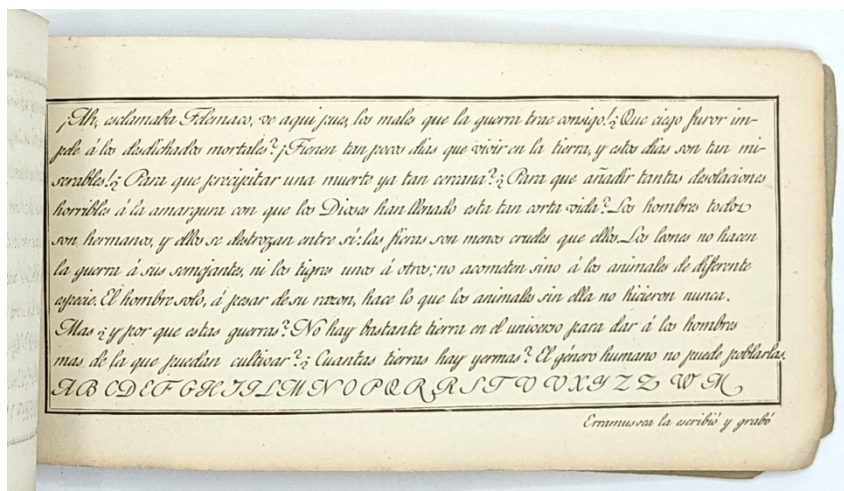 ¡Ah, esclamaba Telemaco, ve aqui pues, los males que la guerra trae consigo! ¿Que ciego furor im-
pele á los desdichados mortales? ¡Tienen tan pocos dias que vivir en la tierra, y estos dias son tan mi-
serables! ¿Para que precipitar una muerte ya tan cercana? ¿Para que añadir tantas desolaciones
horribles á la amargura con que los Dioses han llenado esta tan corta vida? Los hombres todos
son hermanos, y ellos se destrozan entre sí: las fieras son menos crueles que ellos. Los leones no hacen
la guerra á sus semejantes, ni los tigres unos á otros; no acometen sino á los animales de diferente
especie. El hombre solo, á pesar de su razon, hace lo que los animales sin ella no hicieron nunca.
Mas ¿y por que estas guerras? No hay bastante tierra en el universo para dar á los hombres
mas de la que puedan cultivar? ¿Cuantas tierras hay yermas? El género humano no puede poblarlas.
A B C D E F G H I J L M N O P Q R R S T V V X Y Z Z W M
Erramusvea la escribió y grabó